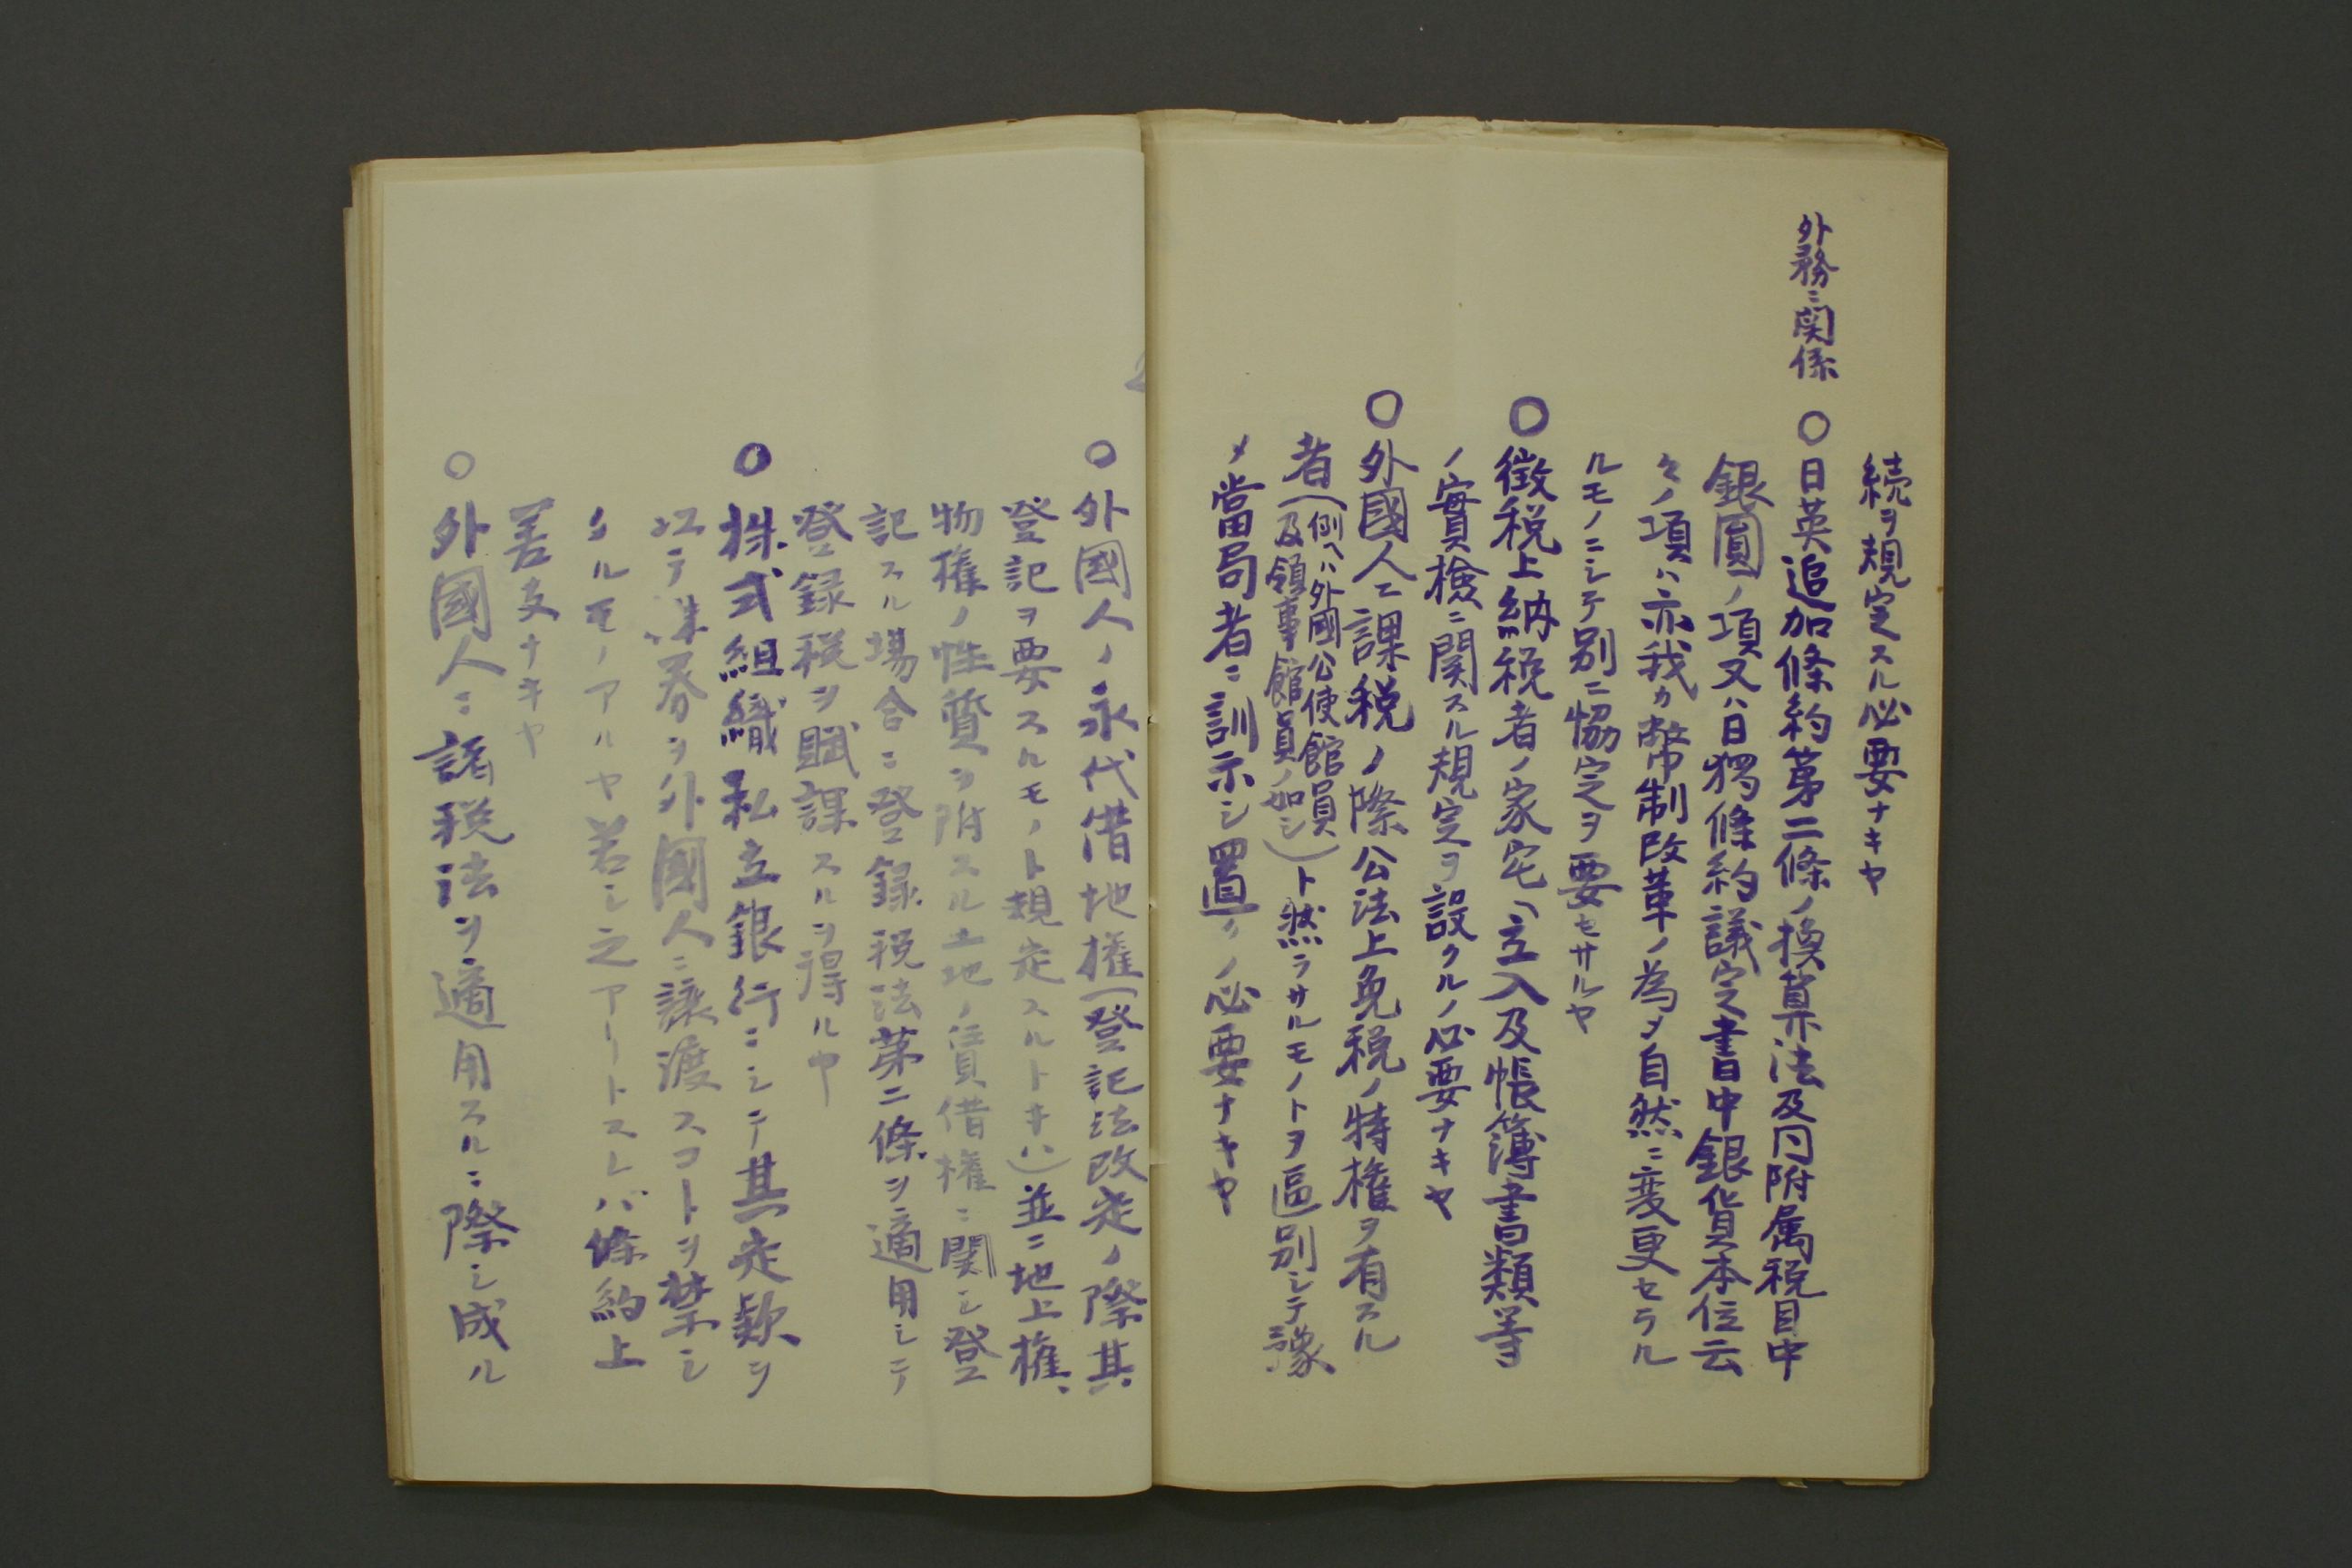 続ヲ規定スル必要ナキヤ
外務ニ関係
○日英追加條約第二條ノ換算法及同附属税目中
銀圓ノ項又ハ日獨條約議定書中銀貨本位云
々ノ項ハ亦我カ幣制改革ノ為メ自然ニ変更セラル
ルモノニシテ別ニ協定ヲ要セサルヤ
○徴税上納税者ノ家宅ヘ立入及帳簿書類等
ノ實検ニ関スル規定ヲ設クルノ必要ナキヤ
○外國人ニ課税ノ際公法上免税ノ特権ヲ有スル
者(例ヘハ外國公使館員及領事館員ノ如シ)ト然ラサルモノトヲ區別シテ豫
メ當局者ニ訓示シ置クノ必要ナキヤ
○外國人ノ永代借地権(登記法改定ノ際其
登記ヲ要スルモノト規定スルトキハ)並ニ地上権、
物権ノ性質ヲ附スル土地ノ賃借権ニ関シ登
記スル場合ニ登録税法第二條ヲ適用シテ
登録税ヲ賦課スルヲ得ルヤ
○株式組織私立銀行ニシテ其定款ヲ
以テ株券ヲ外國人ニ譲渡スコトヲ禁シ
タルモノアルヤ若シ之アリトスレバ條約上
差支ナキヤ
○外國人ニ諸税法ヲ適用スルニ際シ成ル